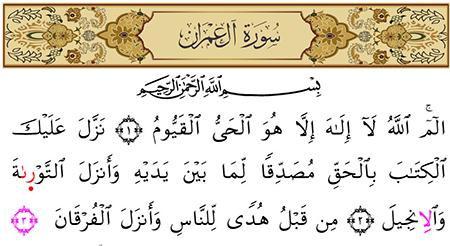 سُورَةُ آلِ عِمْرَانَ
بِسْمِ ٱللَّهِ ٱلرَّحْمَٰنِ ٱلرَّحِيمِ
الٓمٓ ٱللَّهُ لَآ إِلَٰهَ إِلَّا هُوَ ٱلْحَىُّ ٱلْقَيُّومُ ﴿١﴾ نَزَّلَ عَلَيْكَ
ٱلْكِتَٰبَ بِٱلْحَقِّ مُصَدِّقًا لِّمَا بَيْنَ يَدَيْهِ وَأَنزَلَ ٱلتَّوْرَىٰةَ
وَٱلْإِنجِيلَ ﴿٢﴾ مِن قَبْلُ هُدًى لِّلنَّاسِ وَأَنزَلَ ٱلْفُرْقَانَ ﴿٣﴾